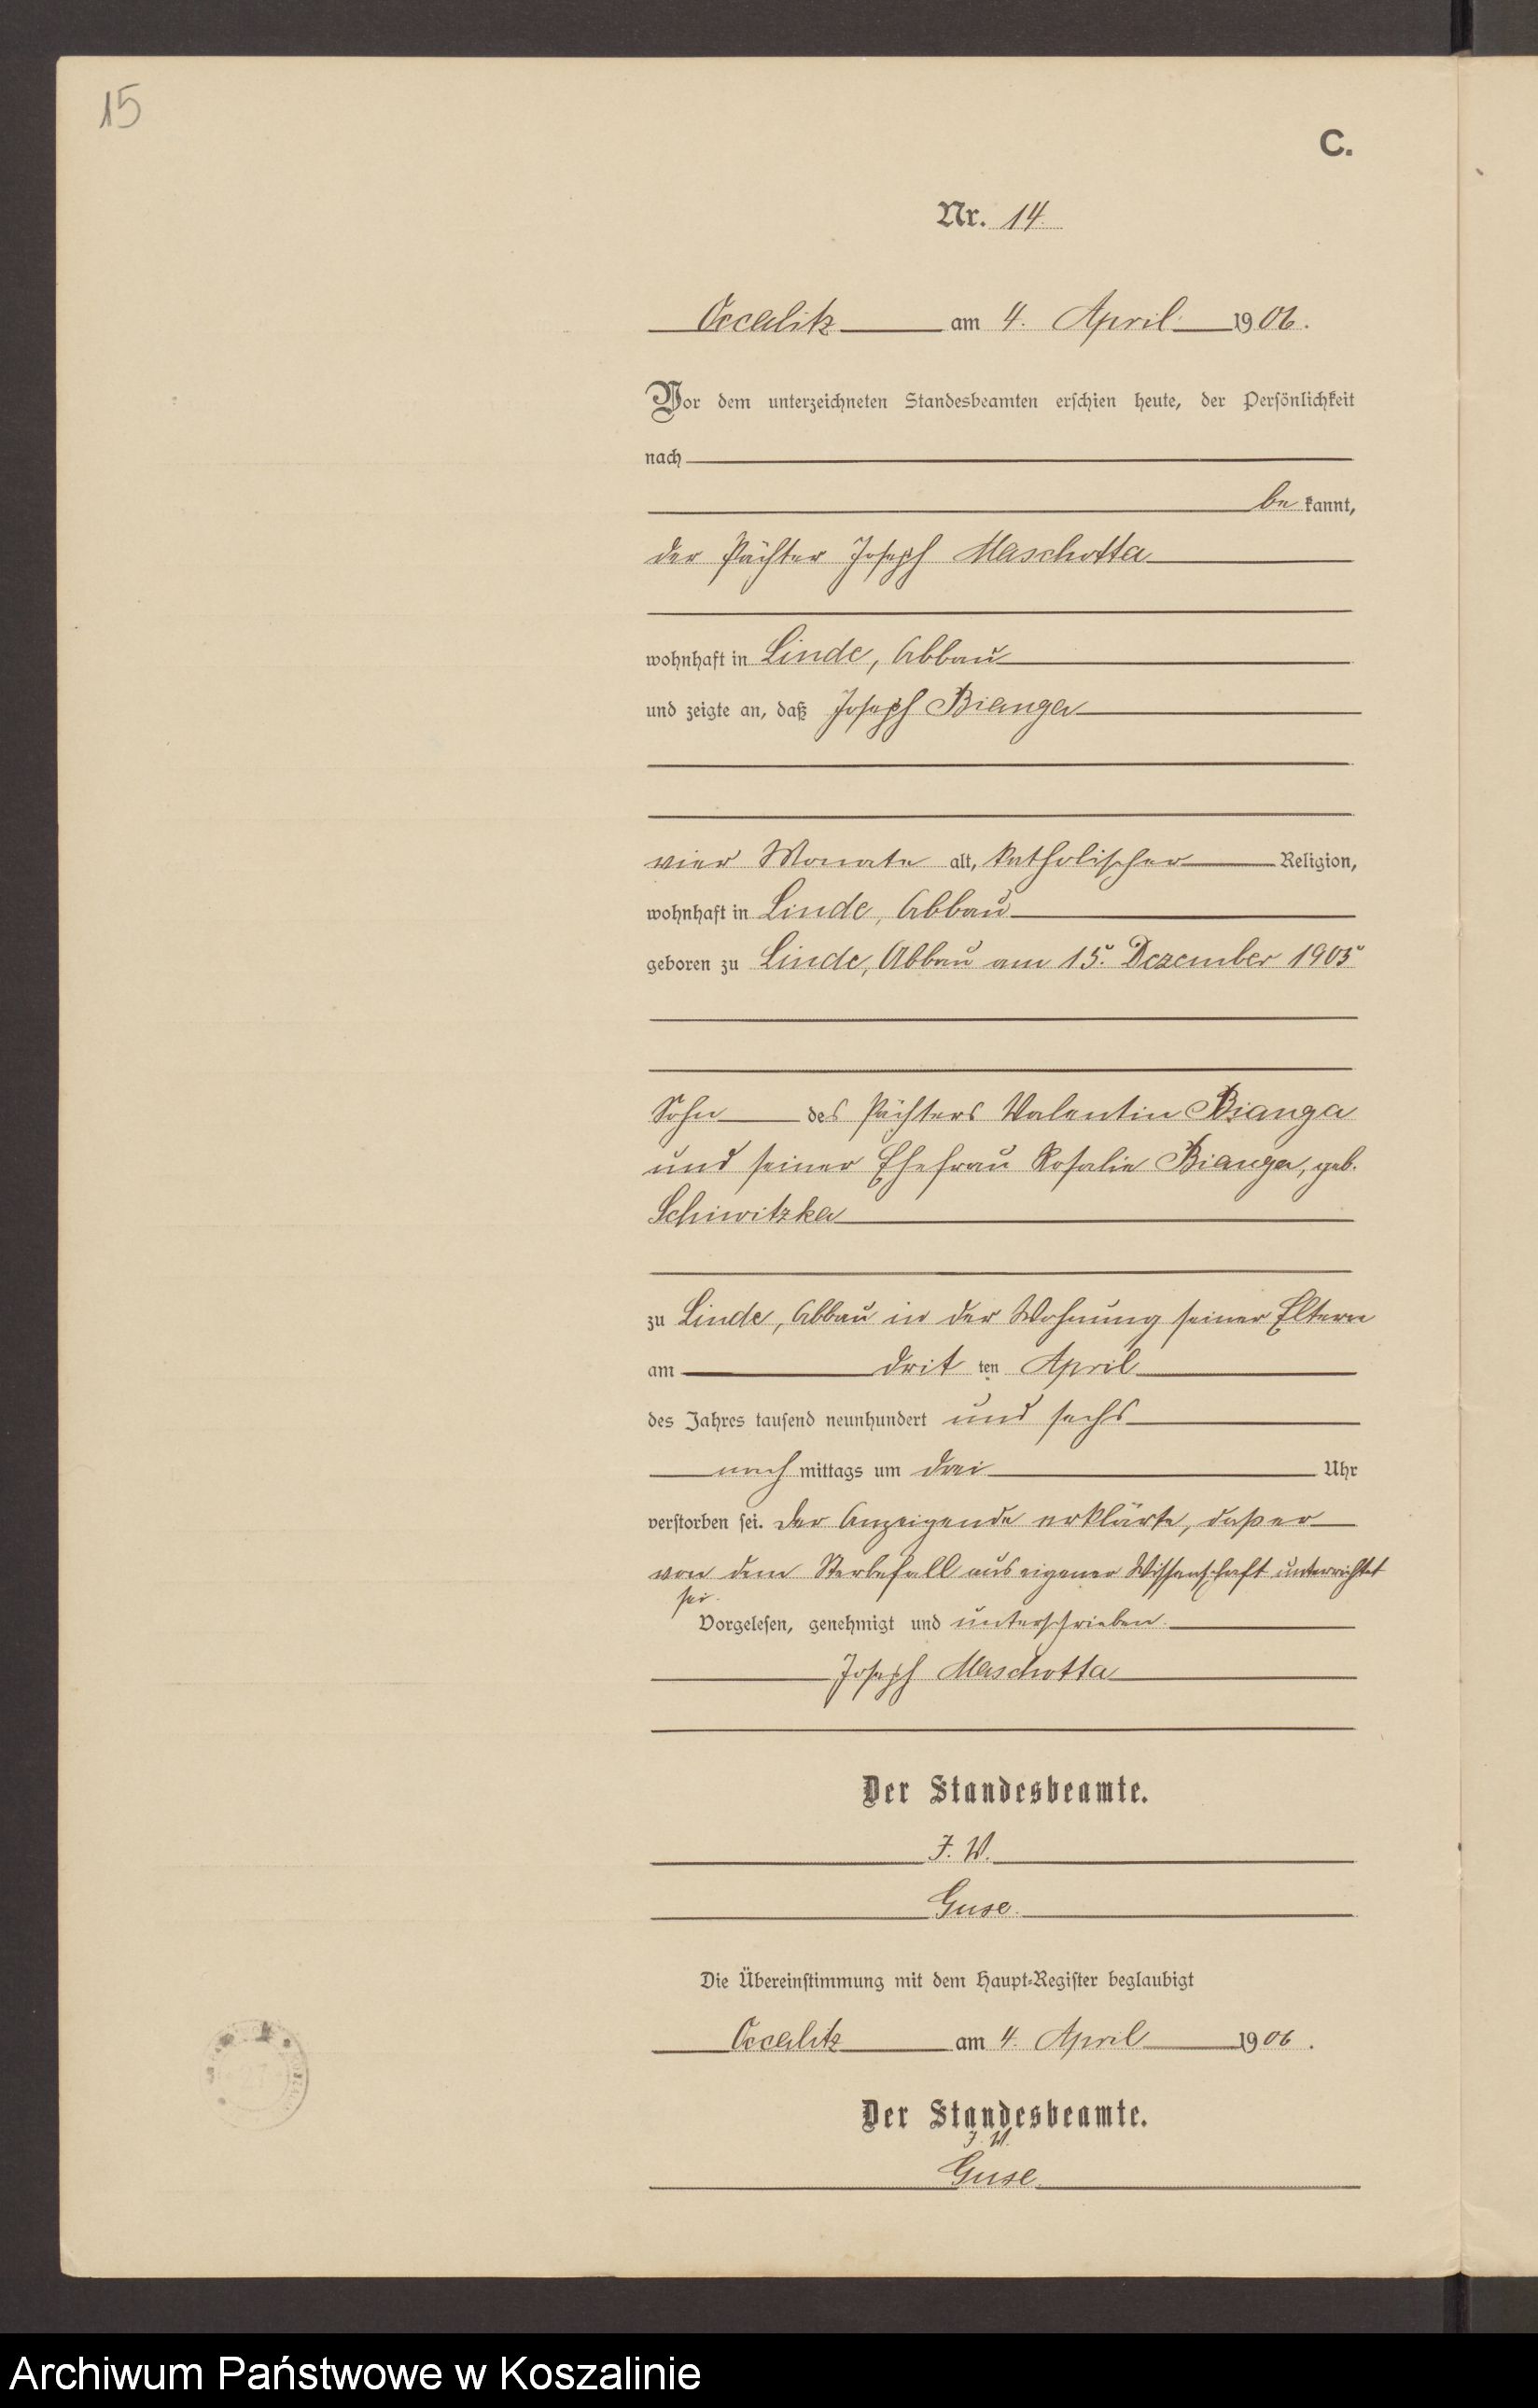 15
C.
Nr. 14.
Occalitz am 4. April 1906.
Vor dem unterzeichneten Standesbeamten erschien heute, der Persönlichkeit
nach
be kannt,
der Pächter Joseph Maschotta
wohnhaft in Linde, Abbau
und zeigte an, daß Joseph Bianga
vier Monate alt, katholischer Religion,
wohnhaft in Linde, Abbau
geboren zu Linde, Abbau am 15. Dezember 1905
Sohn des Pächters Valentin Bianga
und seiner Ehefrau Rosalie Bianga, geb.
Schiwitzka
zu Linde, Abbau in der Wohnung seiner Eltern
am drit ten April
des Jahres tausend neunhundert und sechs
nach mittags um drei Uhr
verstorben sei. Der Anzeigende erklärte, daß er
von dem Sterbefall aus eigener Wissenschaft unterrichtet
sei.
Vorgelesen, genehmigt und unterschrieben.
Joseph Maschotta
Der Standesbeamte.
J. V.
Guse.
Die Übereinstimmung mit dem Haupt-Register beglaubigt
Occalitz am 4. April 1906.
Der Standesbeamte.
J. V.
Guse.
Archiwum Państwowe w Koszalinie